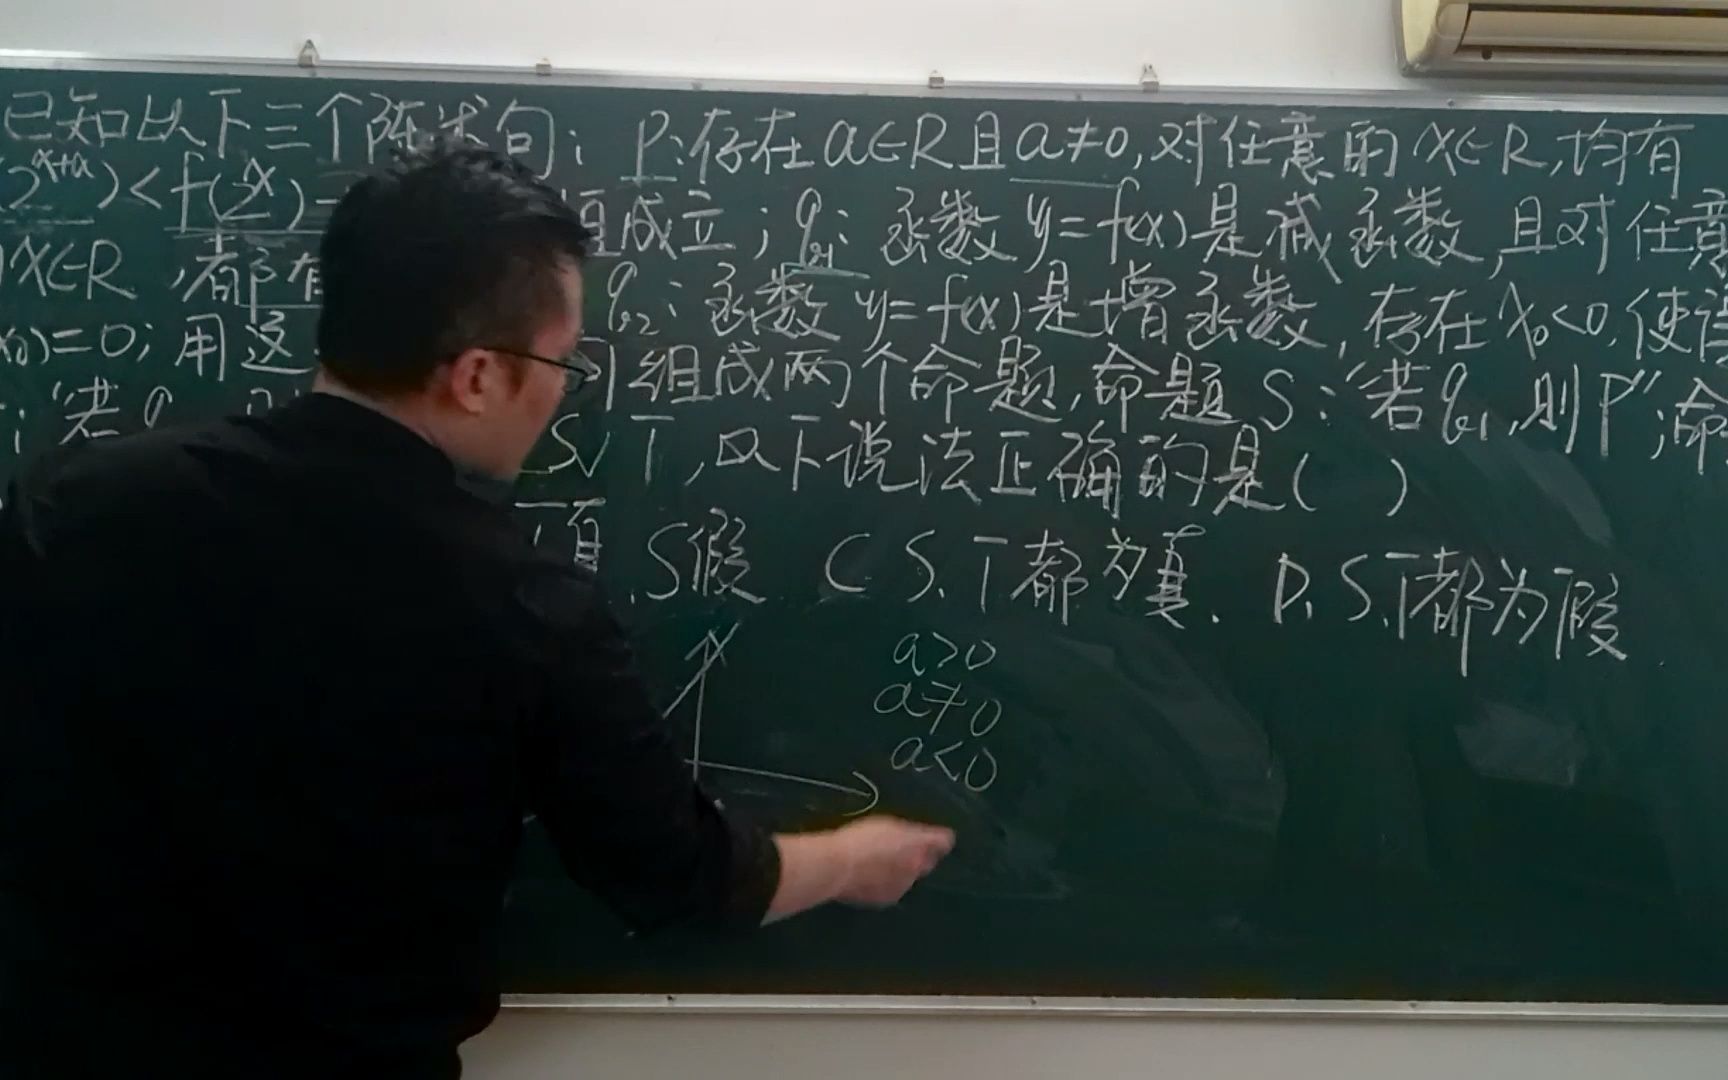 已知以下三个陈述句: P:存在a∈R且a≠0,对任意的x∈R,均有
2^{x+a})<f(2^x)- 恒成立; q₁: 函数y=f(x)是减函数,且对任意
x∈R,都有 q₂: 函数y=f(x)是增函数,存在x₀<0,使得
x₀)=0;用这 组成两个命题,命题S:"若q₁,则P";命
;"若q S、T,以下说法正确的是( )
T真.S假 C S、T都为真. D、S、T都为假.
a>0
a≠0
a<0